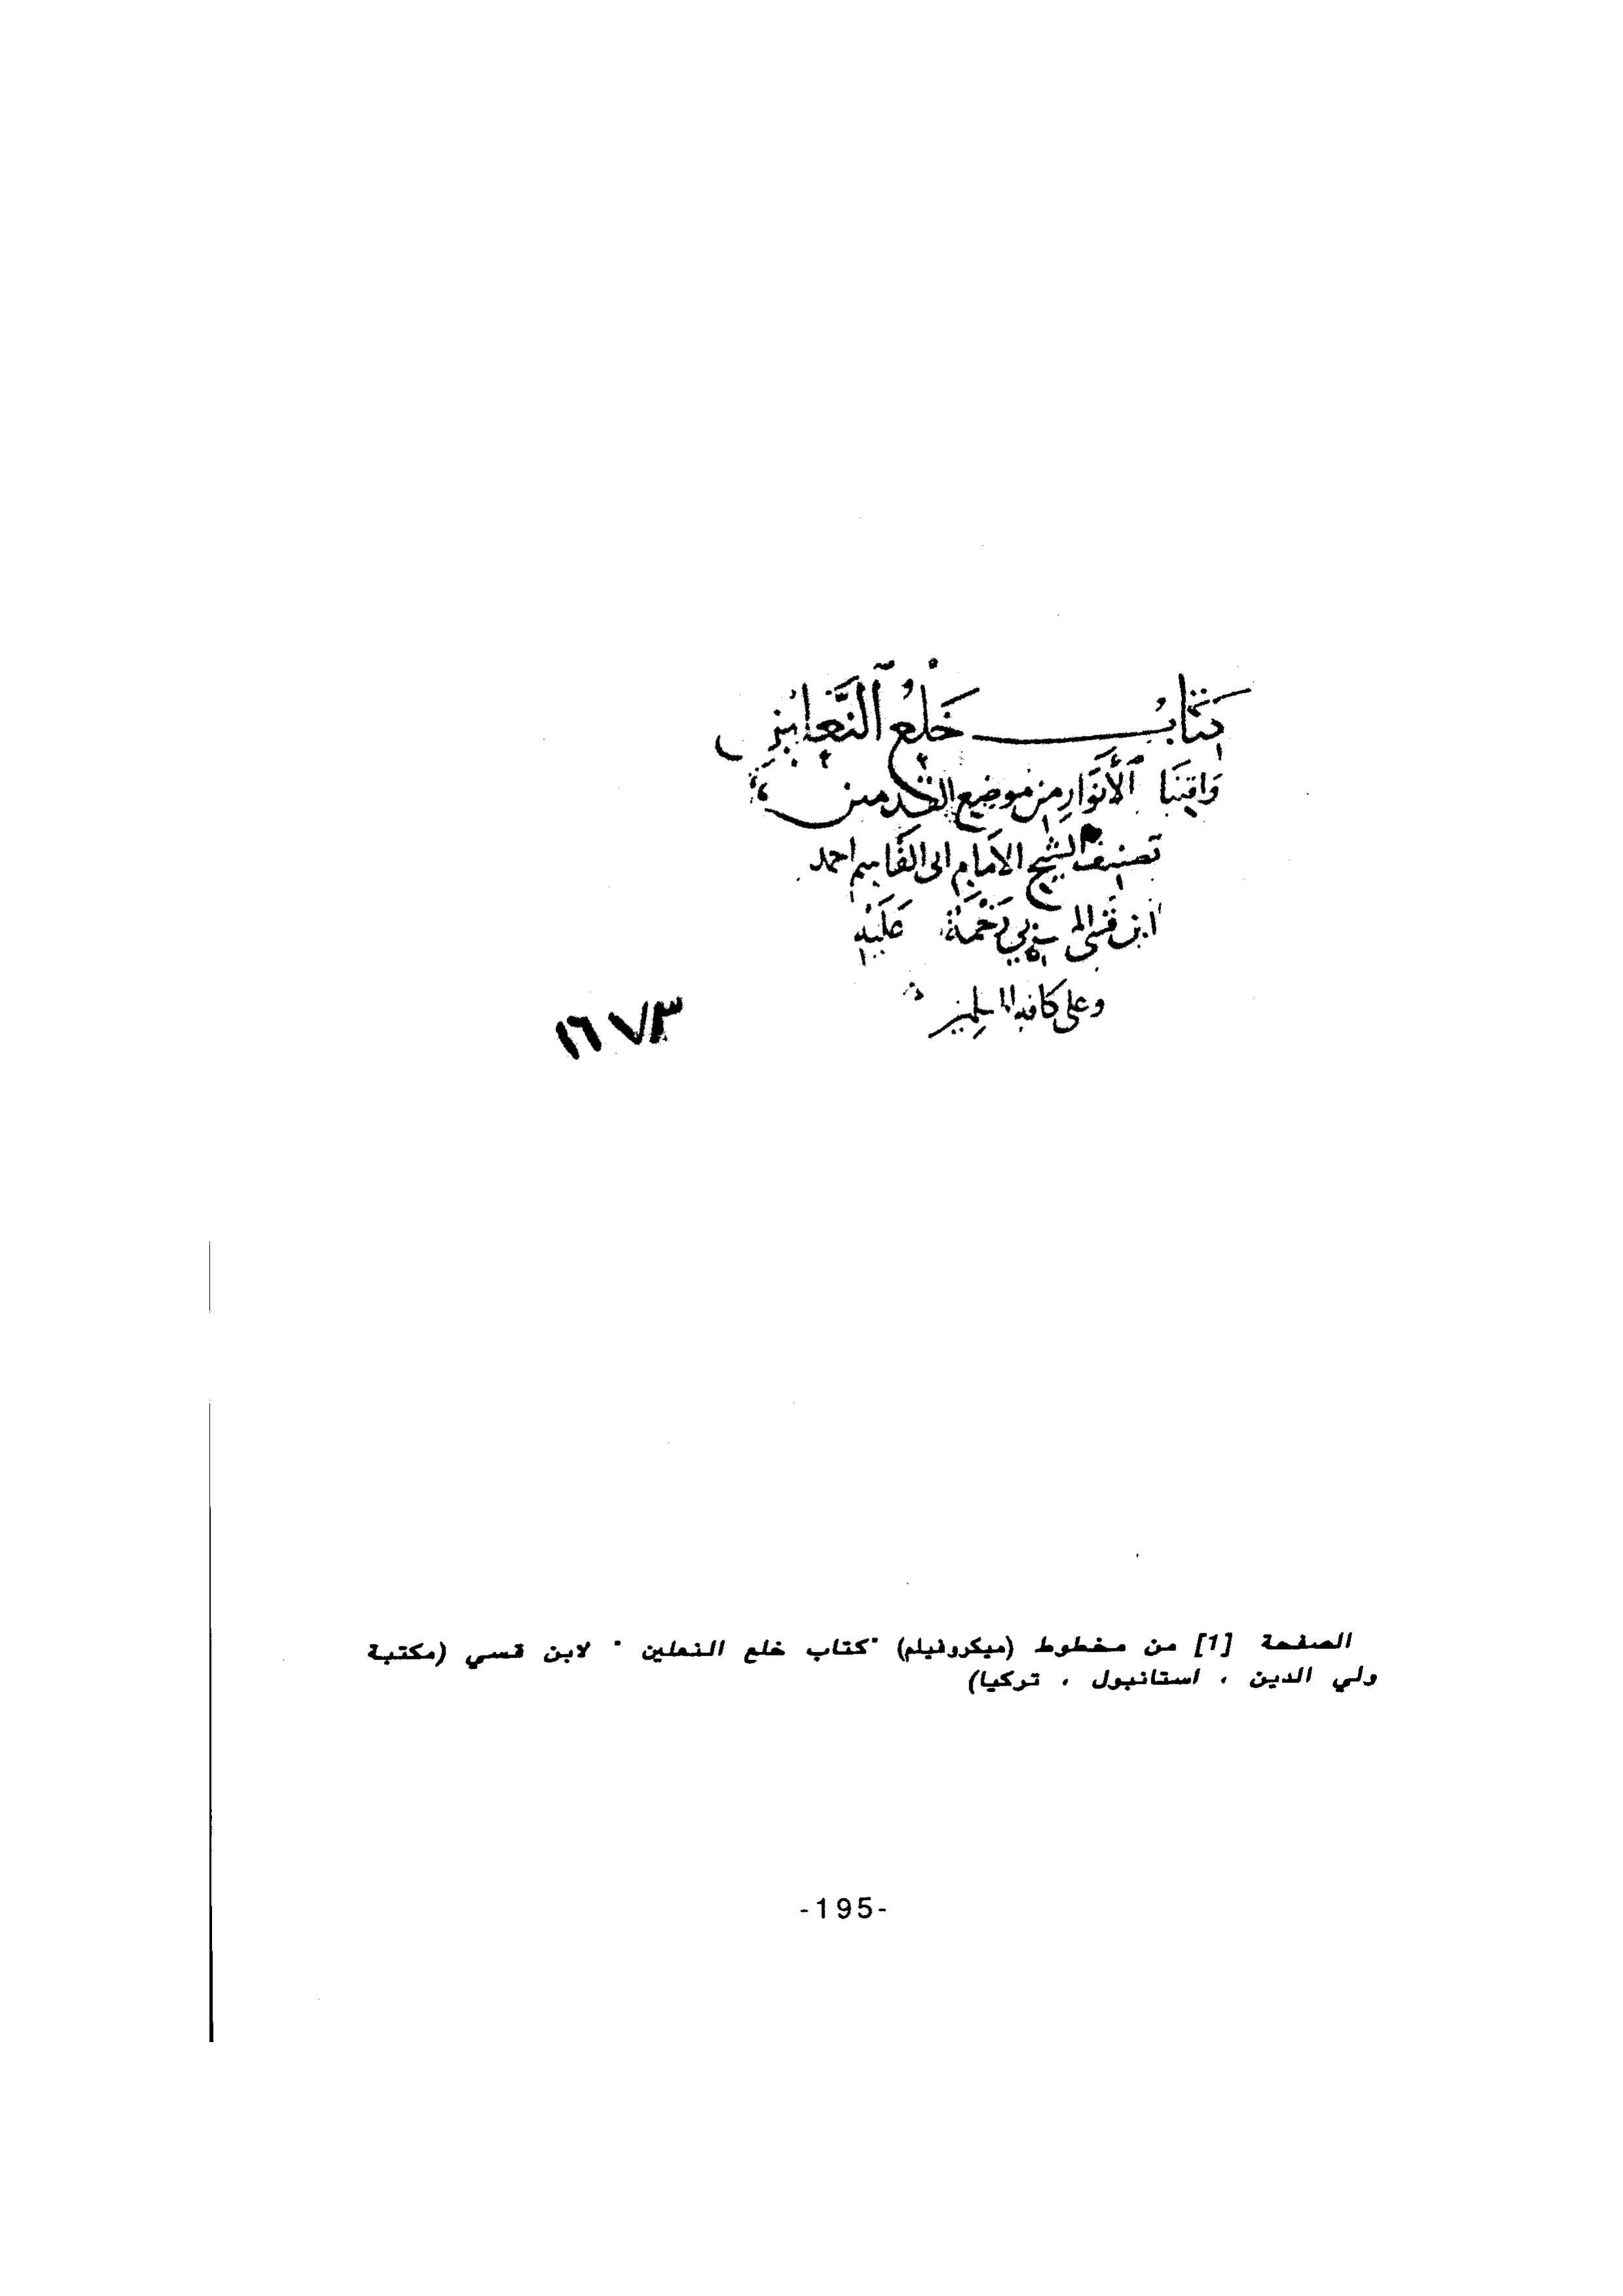 كِتَابُ خَلْعُ ٱلنَّعْلَيْنِ
وَاقتبَا ٱلْأَنْوَارِ مِنْ موضِعِ القدمين
تصنيف الشيخ الامَامِ ابى القَاسِم احمد
ابن قَسى رَحْمَةُ عَلَيْهِ
وعلى كافة
١٦٧٣
الصفحة [1] من مخطوط (ميكروفيلم) "كتاب خلع النعلين " لابن قسي (مكتبة
ولي الدين ، استانبول ، تركيا)
-195-